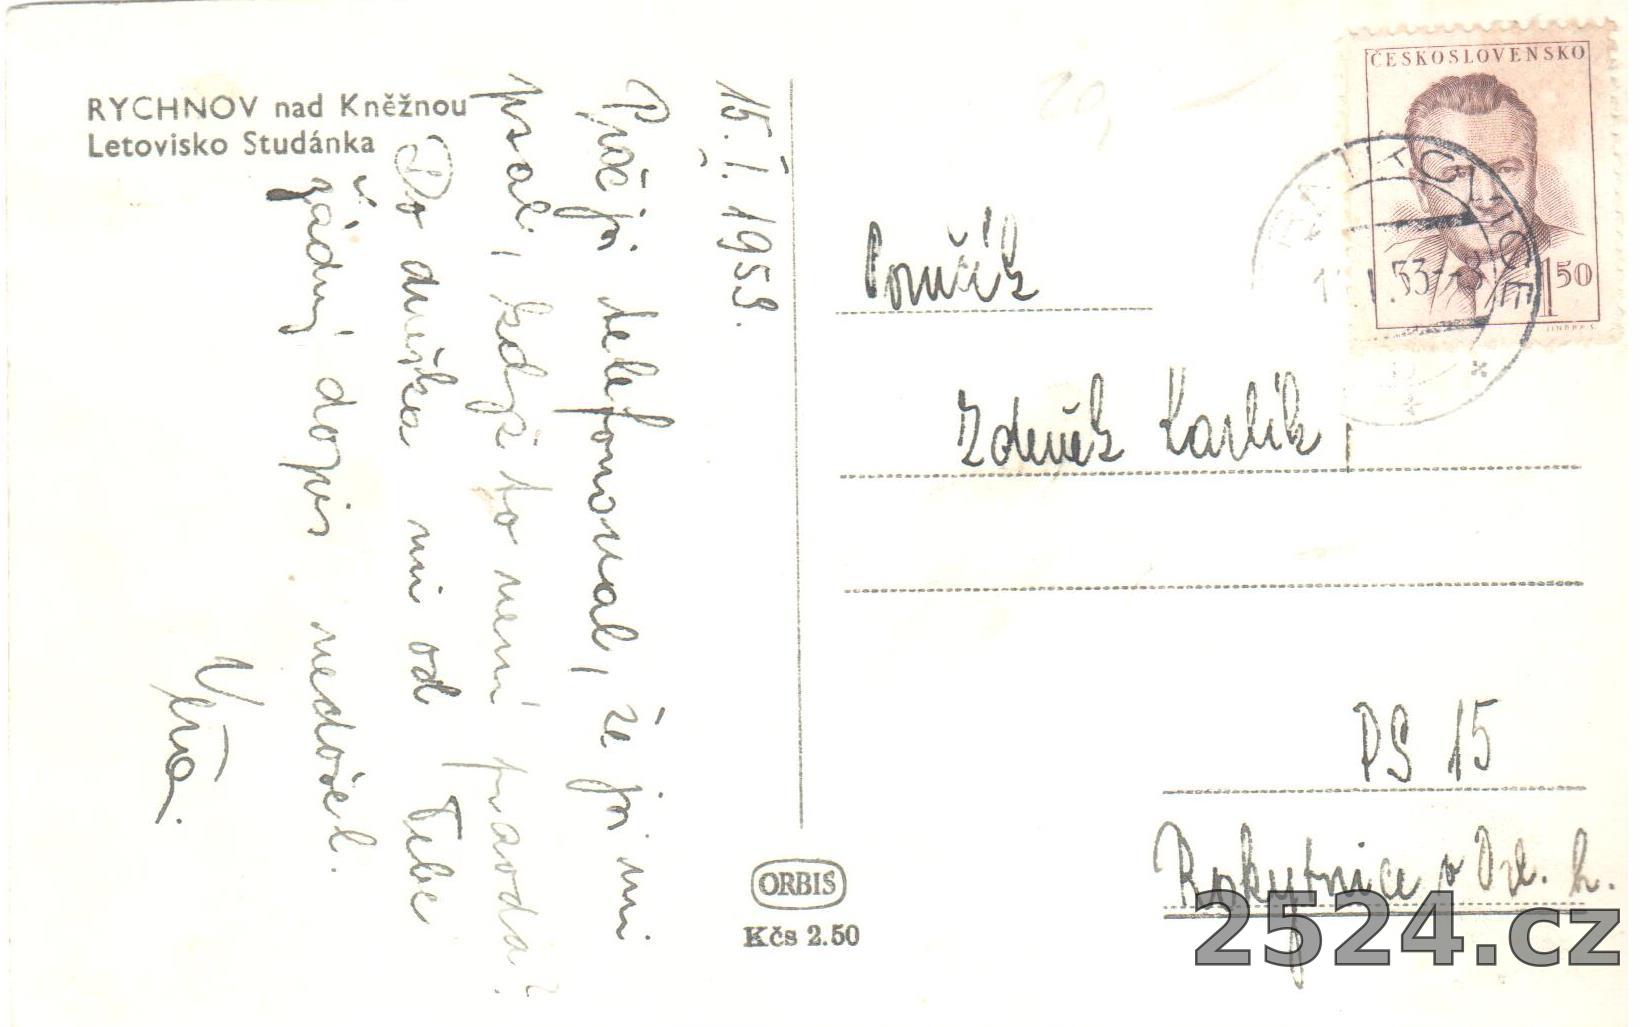 RYCHNOV nad Kněžnou
Letovisko Studánka
15. I. 1953.
Proč jsi telefonoval, že jsi mi
psal, když to není pravda?
Do dneška mi od Tebe
žádný dopis nedošel.
Věra.
ČESKOSLOVENSKO
1 50
Poručík
Zdeněk Karlík
PS 15
Rokytnice v Orl. h.
ORBIS
Kčs 2.50
2524.cz